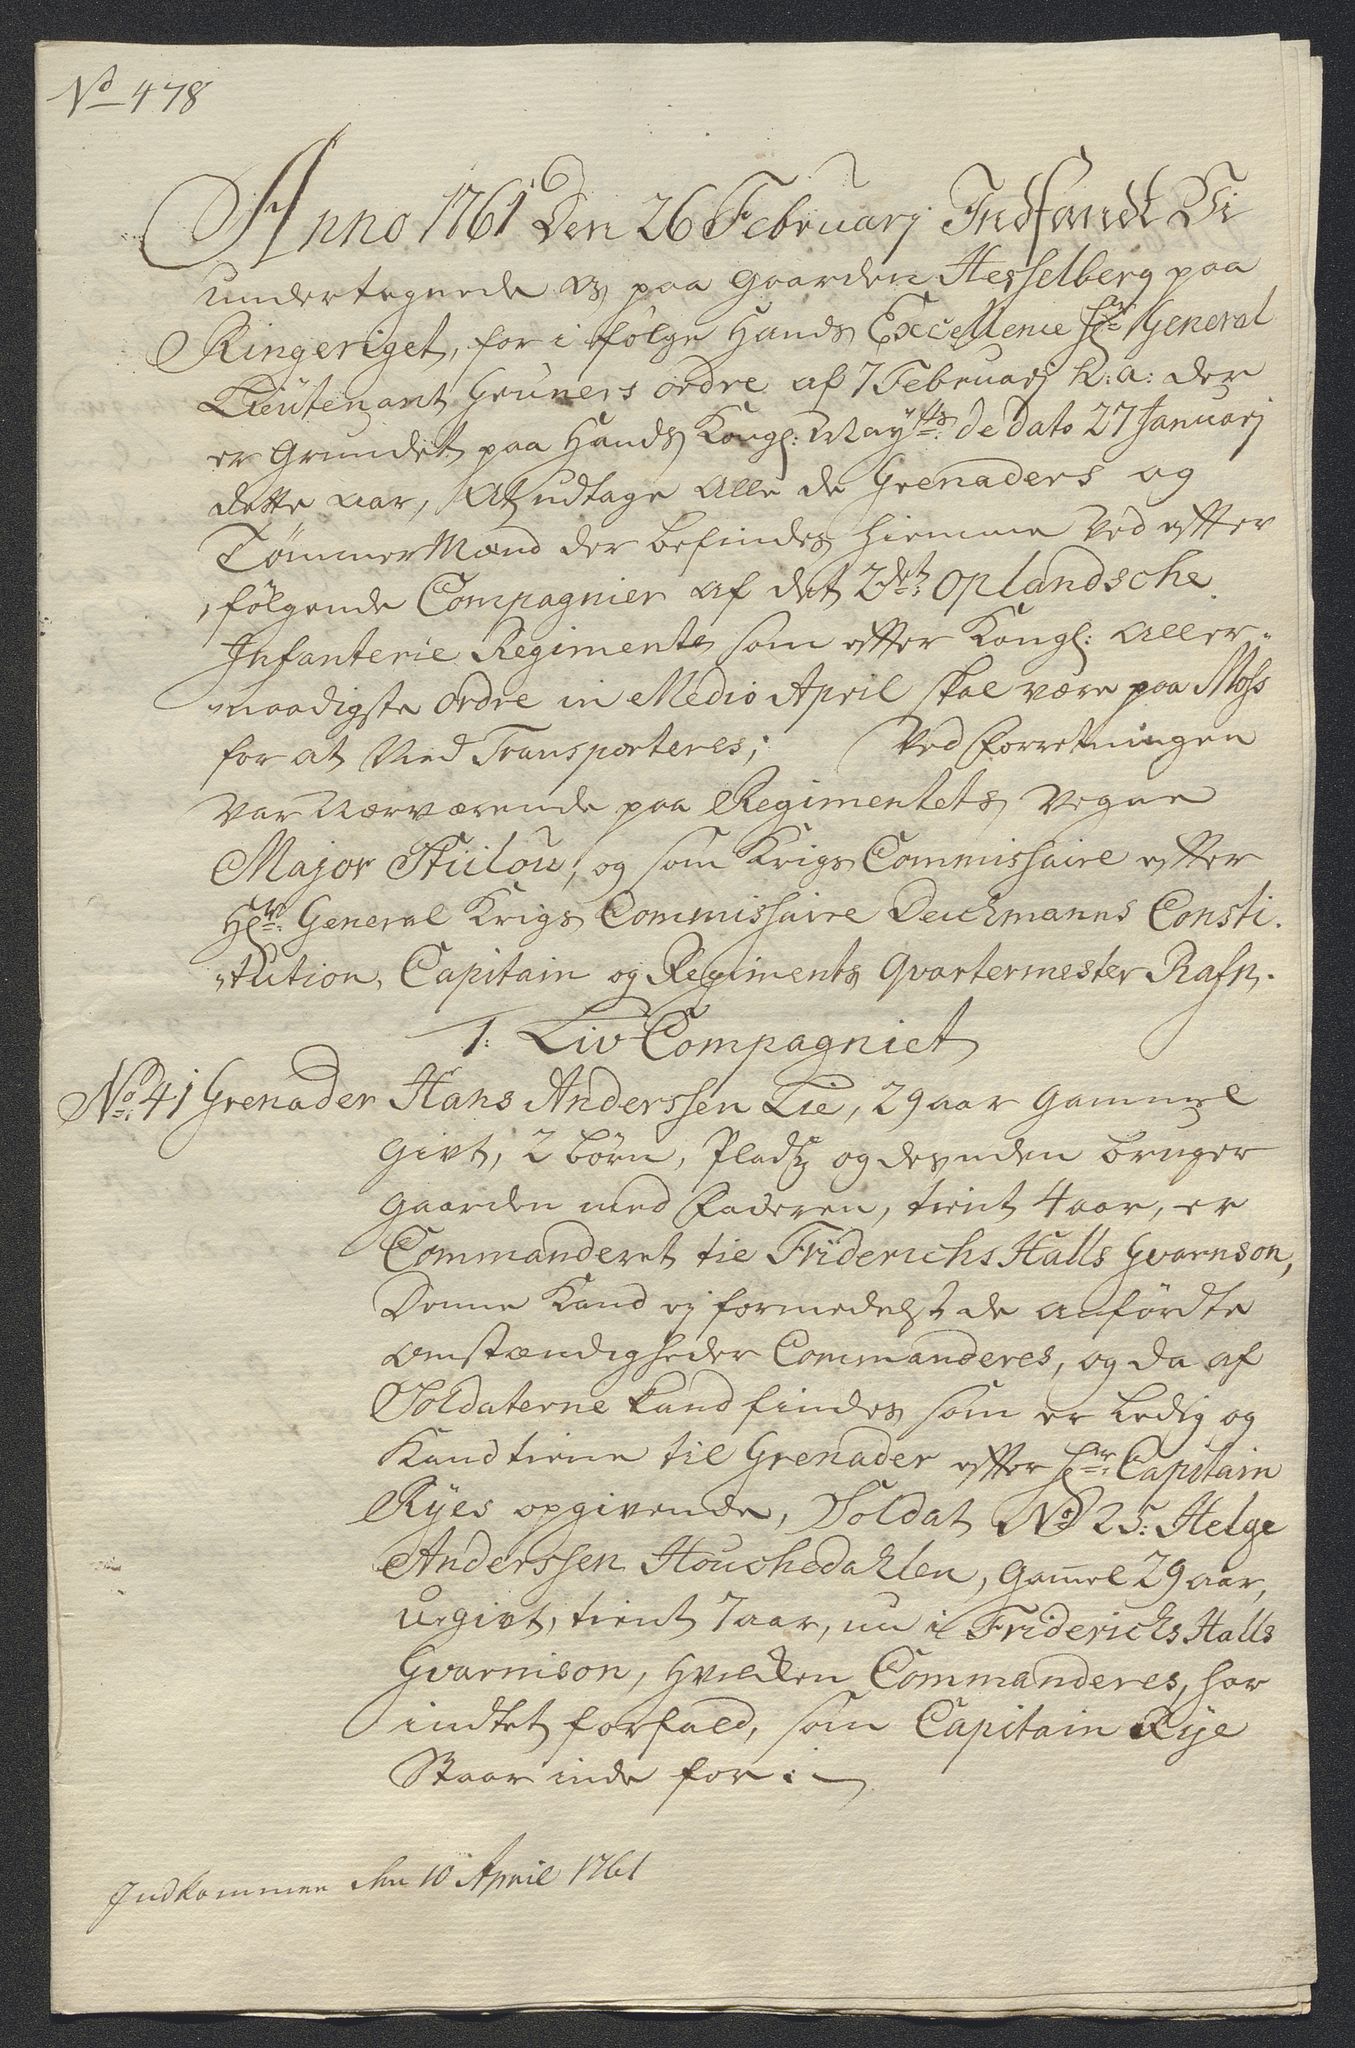 No 478
Anno 1761 Den 26 Februarj Indfandt Vi
undertegnede os paa Gaarden Hesselberg paa
Ringeriget, for i følge Hands Excellence Hr General
Lieutenant Gruners ordre af 7 Februarj h: a: der
er Grundet paa Hands Kongl: Mayts: de dato 27 Januarj
dette aar, At udtage Alle de Grenaders og
Tømmer Mænd der befindes hiemme ved efter
følgende Compagnier af det 2det: Oplandsche
Infanterie Regimente som efter Kongl: Aller-
naadigste Ordre in Medio April skal være paa Moss
for at Ned Transporteres; Ved Forretningen
var Nærværende paa Regimentets Vegne
Major Stülou, og som Krigs Commissaire efter
Hr: General Krigs Commissaire Deichmanns Consti-
tution, Capitain og Regiments Qvartermester Rafn.
1: Liv Compagniet
No: 41 Grenader Hans Anderssen Lie, 29 aar Gammel
Givt, 2 børn, Pladtz og desuden bruger
Gaarden med Faderen, tient 4 aar, er
Commanderet til Friderichs Halls Gvarnson,
Denne Kand ej formedelst de anførdte
Omstændigheder Commanderes, og da af
Soldaterne kand findes som er Ledig og
Kand tiene til Grenader efter Hr: Capitain
Ryes opgivende, Soldat No 25: Helge
Anderssen Houchedahlen, Gam̄el 29 aar,
Ugivt, tient 7 aar, nu i Friderichs Halls
Gvarnison, Hvilken Commanderes, har
indtet forfald, som Capitain Rye
Staar inde for:
Indkommen den 10 April 1761